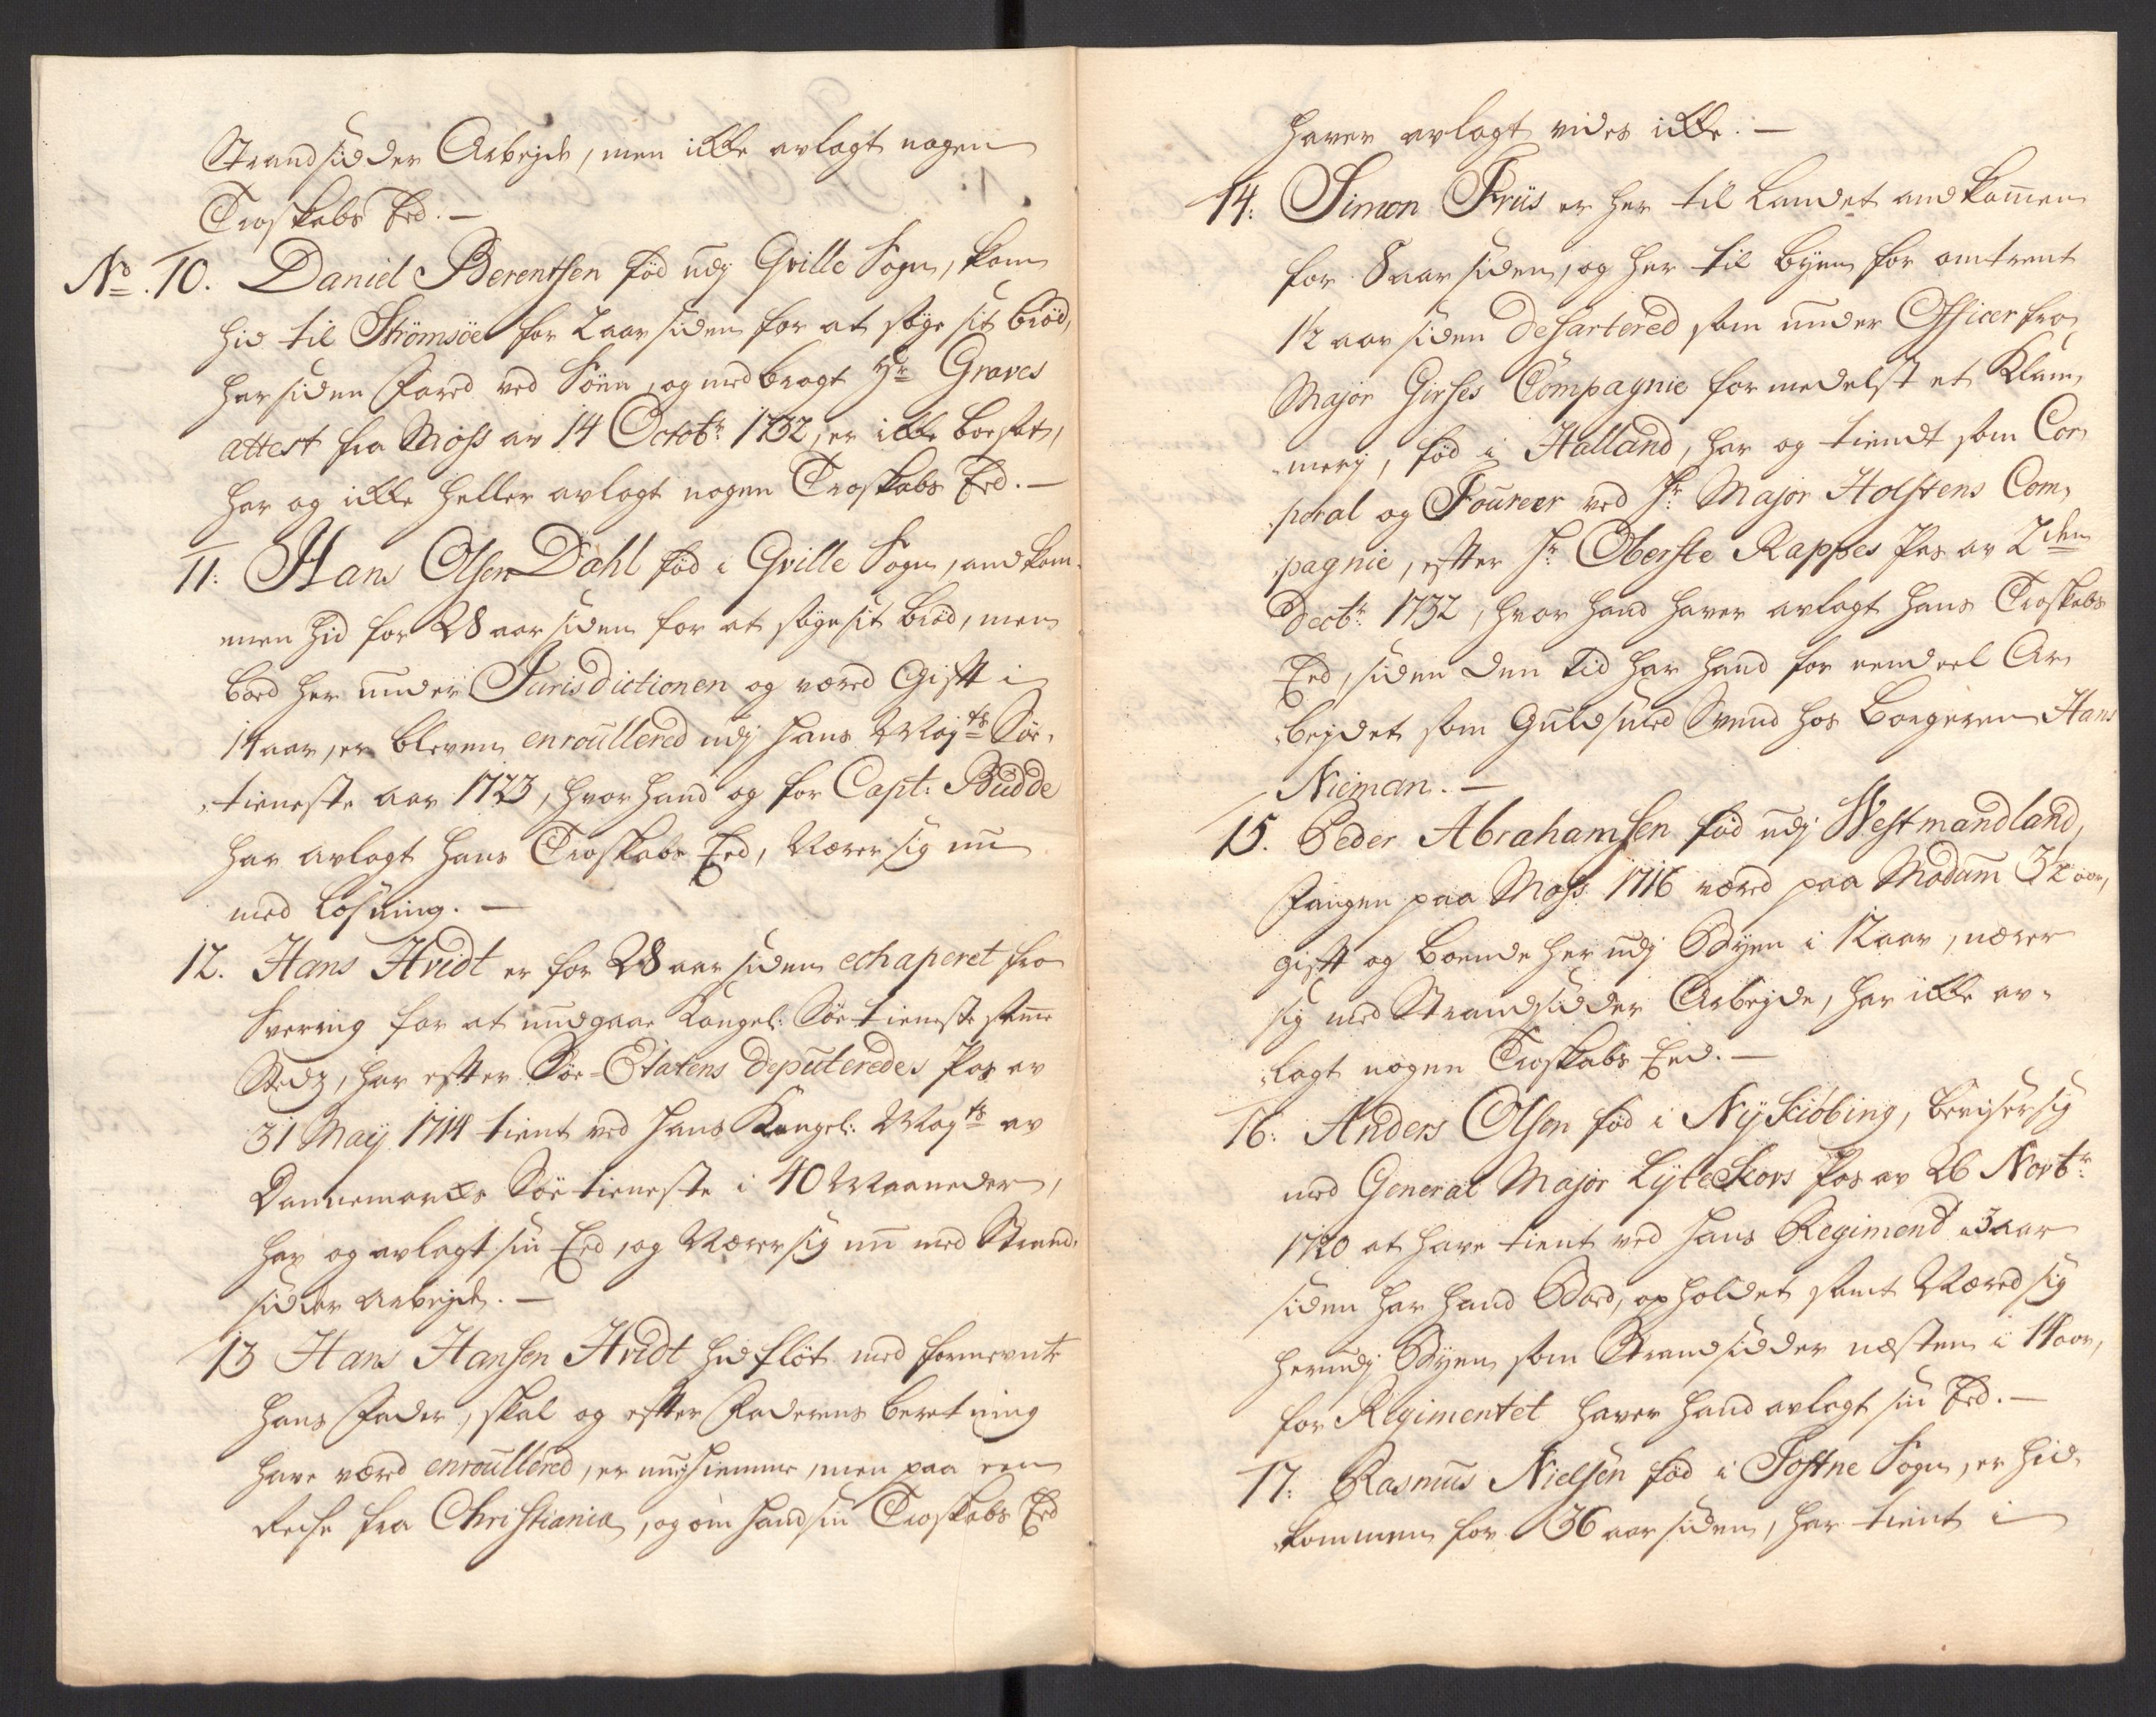 Strandsidder Arbejde, men ikke avlagt nogen
Troskabs Eed. —
No. 10. Daniel Berentsen fød udj Qville Sogn, kom
hid til Strömsöe for 2 aar siden for at søge sit brød,
har siden Fared ved Söen, og medbragt Hr Graves
attest fra Moss av 14 Octobr: 1732, er ikke boesat,
har og ikke heller avlagt nogen Troskabs Eed. —
11: Hans Olsen Dahl fød i Qville Sogn, and kom-
men hid for 28 aar siden for at søge sit brød, men
boed her under Jurisdictionen og været Gift i
14 aar, er bleven enroullered udj Hans Mayts Söe-
tieneste aar 1723, hvor hand og for Capt: Budde
har avlagt Hans Troskabs Eed, Nærer sig nu
med losning. —
12. Hans Hvidt er for 28 aar siden echaperet fra
Sverrig for at undgaae Kongel: Söe tieneste samme
Stedz, har efter Söe-Etatens Deputeredes Pas av
31 Maÿ 1714 tient ved Hans Kongel: Mayts av
Dannemarks Söe tieneste i 40 Maaneder,
har og avlagt sin Eed, og Nærer sig nu med Strand-
sidder Arbejde. —
13 Hans Hansen Hvidt hidfløt med formeente
hans Fader, skal og efter Faderens beretning
have været enroullered, er nu hiemme, men paa en
Reise fra Christiania, og om hand sin Troskabs Eed
haver avlagt vides ikke. —
14: Simon Friis er her til Landet andkommen
for 8 aar siden, og her til byen for omtrent
1½ aar siden Desartered som under Officer fra
Major Girses Compagnie formedelst et Klam-
merj, fød i Halland, har og tiendt som Cor-
poral og Foureer ved Hr: Major Holstens Com-
pagnie, efter Hr: Oberste Rappes Pas av 2den
Decbr: 1732, hvor hand haver avlagt hans Troskabs
Eed, siden den tid har hand for eendeel Ar-
bejdet som Guldsmed Svend hos Borgeren Hans
Nieman. —
15. Peder Abrahamsen fød udj Westmandland,
Fangen paa Moss 1716 været paa Modum 3½ aar,
gift og boende her udj Byen i 12 aar, nærer
sig med Strandsidder Arbejde, har ikke av-
lagt nogen Troskabs Eed. —
16: Anders Olsen fød i Nykiöbing, beviser sig
med General Major Lybeckers Pas av 26 Novbr:
1720 at have tient ved Hans Regiment 3 aar
siden har hand Boed, opholdet samt Næred sig
herudj Byen som Strandsidder næsten i 14 aar,
for Regimentet haver hand avlagt sin Eed. —
17: Rasmus Nielsen fød i Tostne Sogn, er hid-
kommen for 36 aar siden, har tient i